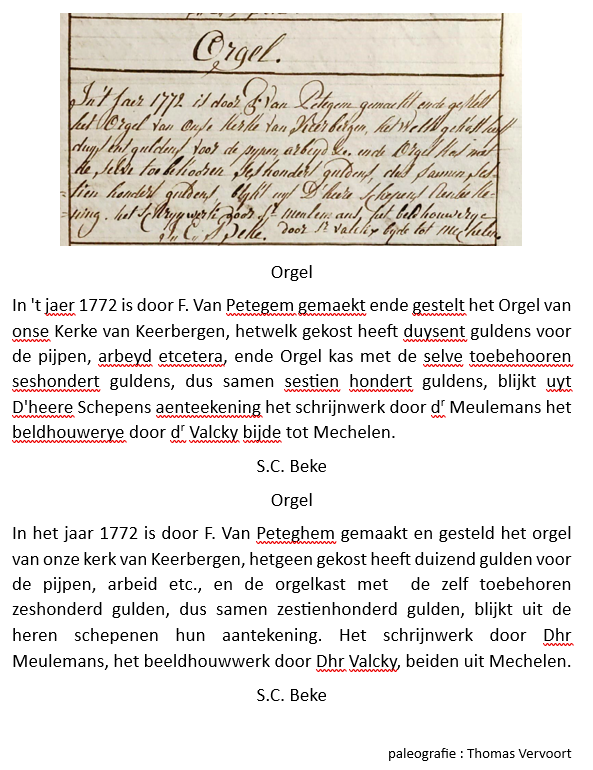 Orgel.
In't Jaer 1772 is door F. Van Petegem gemaekt ende gestelt
het Orgel van onse Kerke van Keerbergen, het welk gekost heeft
duysent guldens voor de pypen, arbeyd &c. ende Orgel kas met
de selve toebehooren seshondert guldens, dus samen ses-
tien hondert guldens, blykt uyt D'heere Schepens aentee ke-
ning. het schrynwerk door dr meulemans, het beldhouwerye
door dr valcky byde tot Mechelen.
S. C. Beke.
Orgel
In 't jaer 1772 is door F. Van Petegem gemaekt ende gestelt het Orgel van
onse Kerke van Keerbergen, hetwelk gekost heeft duysent guldens voor
de pijpen, arbeyd etcetera, ende Orgel kas met de selve toebehooren
seshondert guldens, dus samen sestien hondert guldens, blijkt uyt
D'heere Schepens aenteekening het schrijnwerk door dʳ Meulemans het
beldhouwerye door dʳ Valcky bijde tot Mechelen.
S.C. Beke
Orgel
In het jaar 1772 is door F. Van Peteghem gemaakt en gesteld het orgel
van onze kerk van Keerbergen, hetgeen gekost heeft duizend gulden voor
de pijpen, arbeid etc., en de orgelkast met de zelf toebehoren
zeshonderd gulden, dus samen zestienhonderd gulden, blijkt uit de
heren schepenen hun aantekening. Het schrijnwerk door Dhr
Meulemans, het beeldhouwwerk door Dhr Valcky, beiden uit Mechelen.
S.C. Beke
paleografie : Thomas Vervoort